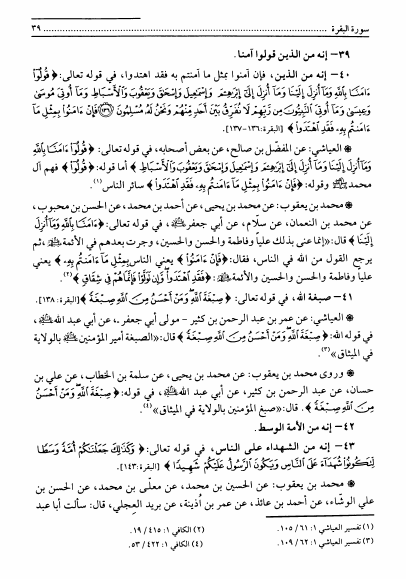 سورة البقرة ... ٣٩
٣٩ - إنه من الذين قولوا آمنا.
٤٠ - إنه من الذين، فإن آمنوا بمثل ما آمنتم به فقد اهتدوا، في قوله تعالى: ﴿ قُولُوٓا۟
ءَامَنَّا بِٱللَّهِ وَمَآ أُنزِلَ إِلَيْنَا وَمَآ أُنزِلَ إِلَىٰٓ إِبْرَٰهِـۧمَ وَإِسْمَٰعِيلَ وَإِسْحَٰقَ وَيَعْقُوبَ وَٱلْأَسْبَاطِ وَمَآ أُوتِىَ مُوسَىٰ
وَعِيسَىٰ وَمَآ أُوتِىَ ٱلنَّبِيُّونَ مِن رَّبِّهِمْ لَا نُفَرِّقُ بَيْنَ أَحَدٍ مِّنْهُمْ وَنَحْنُ لَهُۥ مُسْلِمُونَ ﴿١٣٦﴾ فَإِنْ ءَامَنُوا۟ بِمِثْلِ مَآ
ءَامَنتُم بِهِۦ فَقَدِ ٱهْتَدَوا۟ ﴾ [البقرة: ١٣٦-١٣٧].
◉ العياشي: عن المفضّل بن صالح، عن بعض أصحابه، في قوله تعالى: ﴿ قُولُوٓا۟ ءَامَنَّا بِٱللَّهِ
وَمَآ أُنزِلَ إِلَيْنَا وَمَآ أُنزِلَ إِلَىٰٓ إِبْرَٰهِـۧمَ وَإِسْمَٰعِيلَ وَإِسْحَٰقَ وَيَعْقُوبَ وَٱلْأَسْبَاطِ ﴾ أما قوله: ﴿ قُولُوٓا۟ ﴾ فهم آل
محمد ﷺ وقوله: ﴿ فَإِنْ ءَامَنُوا۟ بِمِثْلِ مَآ ءَامَنتُم بِهِۦ فَقَدِ ٱهْتَدَوا۟ ﴾ سائر الناس(١).
◉ محمد بن يعقوب: عن محمد بن يحيى، عن أحمد بن محمد، عن الحسن بن محبوب،
عن محمد بن النعمان، عن سلّام، عن أبي جعفر عليه السلام، في قوله تعالى: ﴿ ءَامَنَّا بِٱللَّهِ وَمَآ أُنزِلَ
إِلَيْنَا ﴾ قال: «إنما عنى بذلك علياً وفاطمة والحسن والحسين، وجرت بعدهم في الأئمة عليهم السلام، ثم
يرجع القول من الله في الناس، فقال: ﴿ فَإِنْ ءَامَنُوا۟ ﴾ يعني الناس ﴿ بِمِثْلِ مَآ ءَامَنتُم بِهِۦ ﴾ يعني
علياً وفاطمة والحسن والحسين والأئمة عليهم السلام: ﴿ فَقَدِ ٱهْتَدَوا۟ وَّإِن تَوَلَّوْا۟ فَإِنَّمَا هُمْ فِى شِقَاقٍ ﴾»(٢).
٤١ - صبغة الله، في قوله تعالى: ﴿ صِبْغَةَ ٱللَّهِ وَمَنْ أَحْسَنُ مِنَ ٱللَّهِ صِبْغَةً ﴾ [البقرة: ١٣٨].
◉ العياشي: عن عمر بن عبد الرحمن بن كثير - مولى أبي جعفر -، عن أبي عبد الله عليه السلام،
في قوله الله: ﴿ صِبْغَةَ ٱللَّهِ وَمَنْ أَحْسَنُ مِنَ ٱللَّهِ صِبْغَةً ﴾ قال: «الصبغة أمير المؤمنين عليه السلام بالولاية
في الميثاق»(٣).
◉ وروى محمد بن يعقوب: عن محمد بن يحيى، عن سلمة بن الخطاب، عن علي بن
حسان، عن عبد الرحمن بن كثير، عن أبي عبد الله عليه السلام، في قوله: ﴿ صِبْغَةَ ٱللَّهِ وَمَنْ أَحْسَنُ
مِنَ ٱللَّهِ صِبْغَةً ﴾. قال: «صبغ المؤمنين بالولاية في الميثاق»(٤).
٤٢ - إنه من الأمة الوسط.
٤٣ - إنه من الشهداء على الناس، في قوله تعالى: ﴿ وَكَذَٰلِكَ جَعَلْنَٰكُمْ أُمَّةً وَسَطًا
لِّتَكُونُوا۟ شُهَدَآءَ عَلَى ٱلنَّاسِ وَيَكُونَ ٱلرَّسُولُ عَلَيْكُمْ شَهِيدًا ﴾ [البقرة: ١٤٣].
◉ محمد بن يعقوب: عن الحسين بن محمد، عن معلّى بن محمد، عن الحسن بن
علي الوشّاء، عن أحمد بن عائذ، عن عمر بن أُذينة، عن بريد العجلي، قال: سألت أبا عبد
(١) تفسير العياشي ١: ٦١ / ١٠٥.
(٢) الكافي ١: ٤١٥ / ١٩.
(٣) تفسير العياشي ١: ٦٢ / ١٠٩.
(٤) الكافي ١: ٤٢٢ / ٥٣.